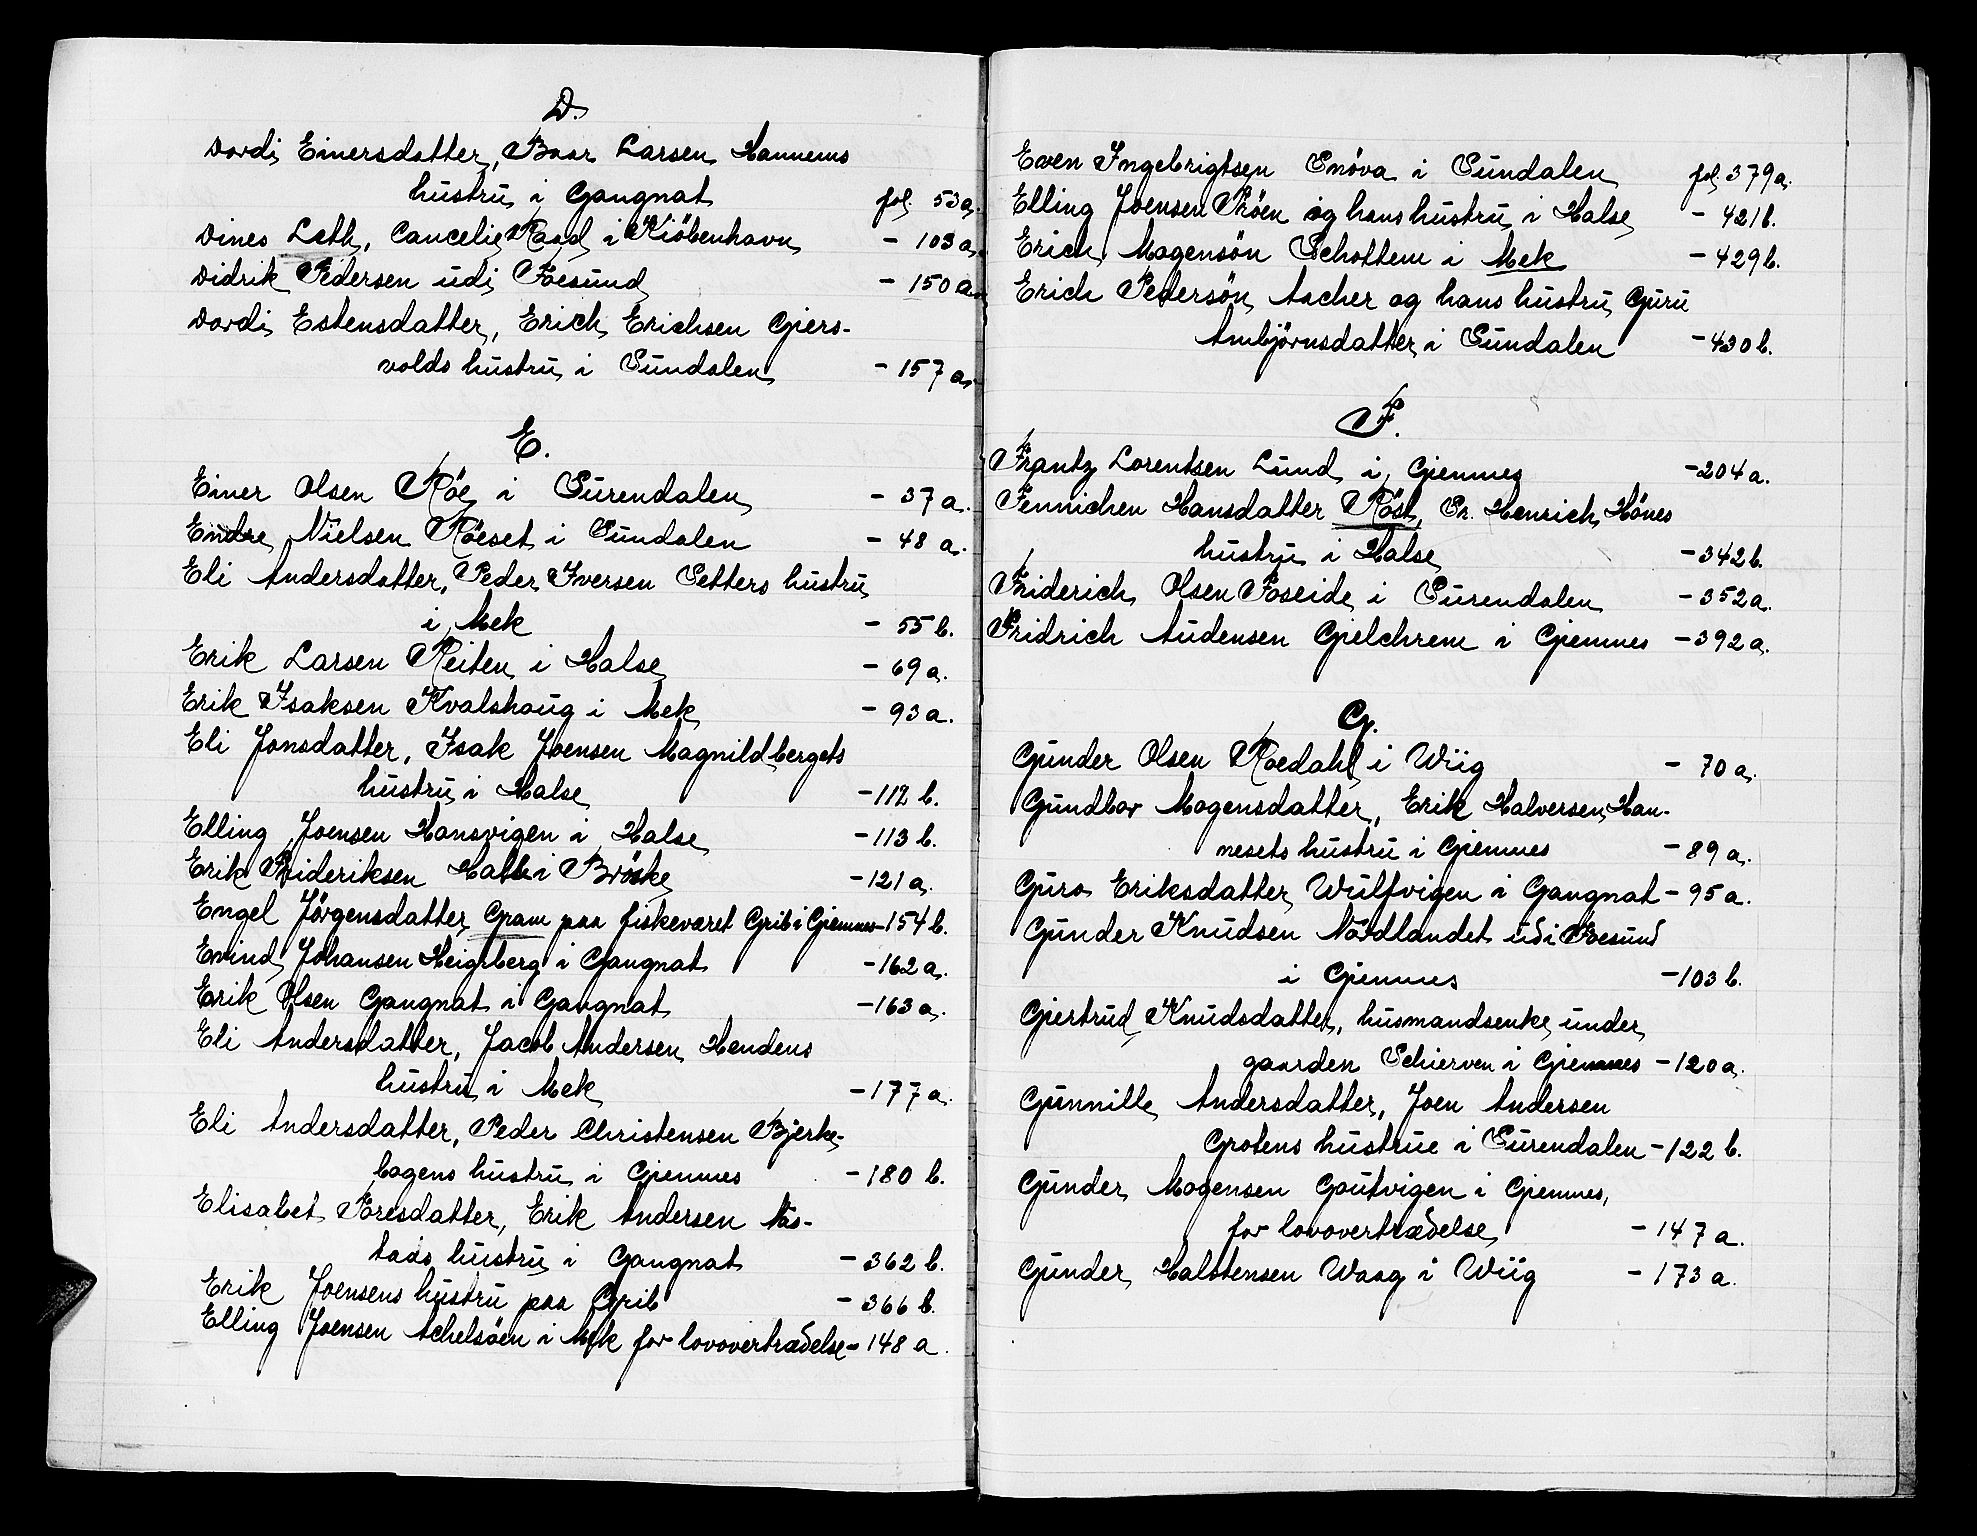 D.
Dordi Einersdatter, Baar Larsen Hannems
hustru i Gangnat fol. 53 a.
Dines Leth, Cancelie Raad i Kiöbenhavn - 103 a.
Didrik Pedersen udi Foesund - 150 a.
Dordi Estensdatter, Erich Erichsen Gjers-
volds hustru i Sundalen - 157 a.
E.
Einer Olsen Röe i Surendalen - 37 a.
Endre Nielsen Röeset i Sundalen - 48 a.
Eli Andersdatter, Peder Iversen Setters hustru
i Mek - 55 b.
Erik Larsen Reiten i Halse - 69 a.
Erik Isaksen Kvalshaug i Mek - 93 a.
Eli Jonsdatter, Isak Joensen Magnildbergets
hustru i Halse - 112 b.
Elling Joensen Hansvigen i Halse - 113 b.
Erik Frideriksen i Bröske - 121 a.
Engel Jörgensdatter Gram paa fiskeværet Grib i Gjemnes - 154 b.
Evind Johansen Heigrberg i Gangnat - 162 a.
Erik Olsen Gangnat i Gangnat - 163 a.
Eli Andersdatter, Jacob Andersen Hendens
hustru i Mek - 177 a.
Eli Andersdatter, Peder Christensen Bjerke-
hagens hustru i Gjemnes - 180 b.
Elisabet Foresdatter, Erik Andersen Nas-
tads hustru i Gangnat - 362 b.
Erik Joensens hustru paa Grib - 366 b.
Elling Joensen Achelsöen i Mek for lovovertrædelse - 148 a.
Even Ingebrigtsen Snöva i Sundalen fol. 379 a.
Elling Joensen Röen og hans hustru i Halse - 421 b.
Erich Mogensön Schottem i Mek - 429 b.
Erich Pedersön Aacher og hans hustru Guru
Ambjörnsdatter i Sundalen - 430 b.
F.
Frantz Lorentsen Lund i Gjemnes - 204 a.
Fennichen Hansdatter Röst, Sr. Henrich Hönes
hustru i Halse - 342 b.
Friderich Olsen Foseide i Surendalen - 352 a.
Fridrich Audensen Gjelchrem i Gjemnes - 392 a.
G.
Gunder Olsen Roedahl i Wiig - 70 a.
Gundbor Mogensdatter, Erik Halversen Han-
nesets hustru i Gjemnes - 89 a.
Guro Eriksdatter Wulfvigen i Gangnat - 95 a.
Gunder Knudsen Nordlandet udi Foesund
i Gjemnes - 103 b.
Gjertrud Knudsdatter, husmandsenke under
gaarden Schierven i Gjemnes - 120 a.
Gunnille Andersdatter, Joen Andersen
Grotens hustrue i Surendalen - 122 b.
Gunder Mogensen Gautvigen i Gjemnes,
for lovovertrædelse - 147 a.
Gunder Halstensen Waag i Wiig - 173 a.